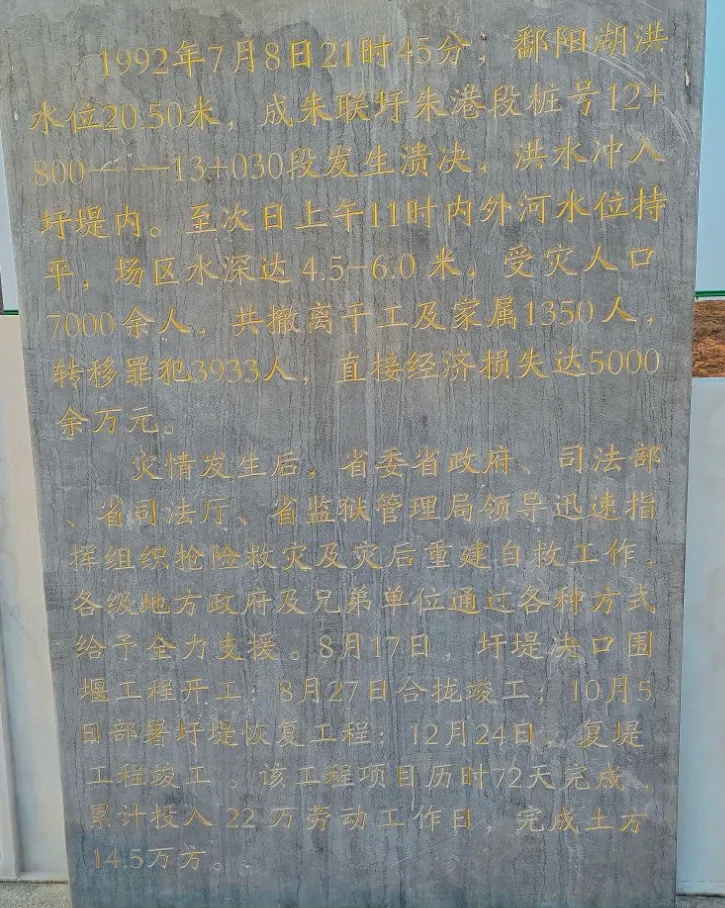 1992年7月8日21时45分，鄱阳湖洪
水位20.50米，成朱联圩朱港段桩号12+
800——13+030段发生溃决，洪水冲入
圩堤内。至次日上午11时内外河水位持
平，场区水深达 4.5-6.0 米，受灾人口
7000余人，共撤离干工及家属1350人，
转移罪犯3933人，直接经济损失达5000
余万元。
灾情发生后，省委省政府、司法部
、省司法厅、省监狱管理局领导迅速指
挥组织抢险救灾及灾后重建自救工作，
各级地方政府及兄弟单位通过各种方式
给予全力支援。8月17日，圩堤决口围
堰工程开工；8月27日合拢竣工；10月5
日部署圩堤恢复工程；12月24日，复堤
工程竣工。该工程项目历时72天完成，
累计投入 22 万劳动工作日，完成土方
14.5万方。